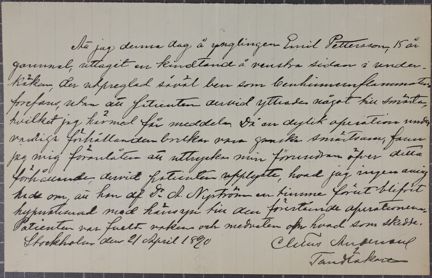 Att jag denna dag å ynglingen Emil Pettersson, 15 år
gammal, uttagit en kindtand å venstra sidan i under-
käken, der såväl ben som benhinneinflammation
förefans, utan att patienten dervid yttrade något till smärta,
hvilket jag härmed får meddela. Då en dylik operation under
vanliga förhållanden brukar vara ganska smärtsam, fann
jag mig föranlåten att uttrycka min förundran öfver detta
förhållande dervid patienten upplyste, hvad jag ingen aning
hade om, att han af D:r A Nyström en timme förut blifvit
hypnotiserad med hänsyn till den förestående operationen.
Patienten var fullt vaken och medveten om hvad som skedde.
Stockholm den 21 April 1890
Tandläkare